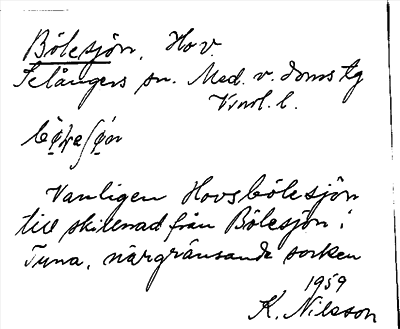 Bölesjön. Hov.
Selångers sn. Med. v. doms tg
Vnrl. l.
Vanligen Hovsbölesjön
till skillnad från Bölesjön i
Tuna, närgränsande socken
1959
K. Nilsson